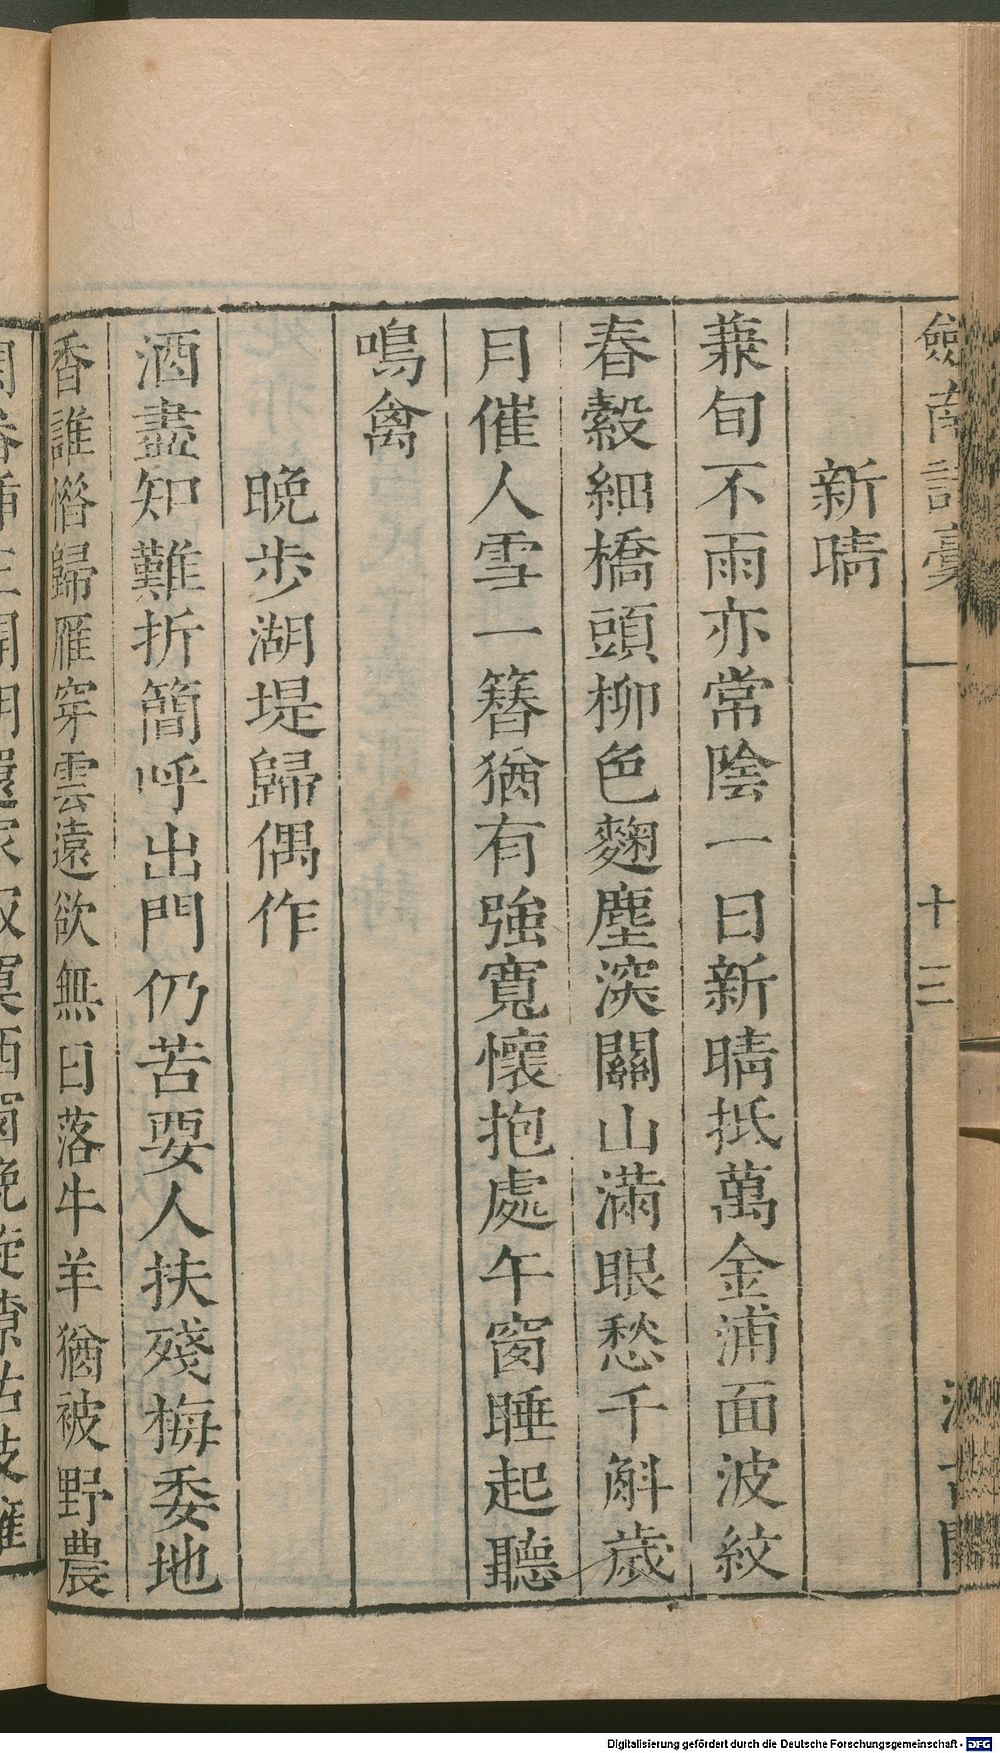 劍南詩稾 十三
新晴
蒹旬不雨亦常陰一日新晴抵萬金浦面波紋
春縠細橋頭柳色麴塵深關山滿眼愁千斛歲
月催人雪一簪猶有強寬懷抱處午窗睡起聽
鳴禽
晚步湖堤歸偶作
酒盡知難折簡呼出門仍苦要人扶殘梅委地
香誰惜歸雁穿雲遠欲無日落牛羊猶被野農
Digitalisierung gefördert durch die Deutsche Forschungsgemeinschaft - DFG